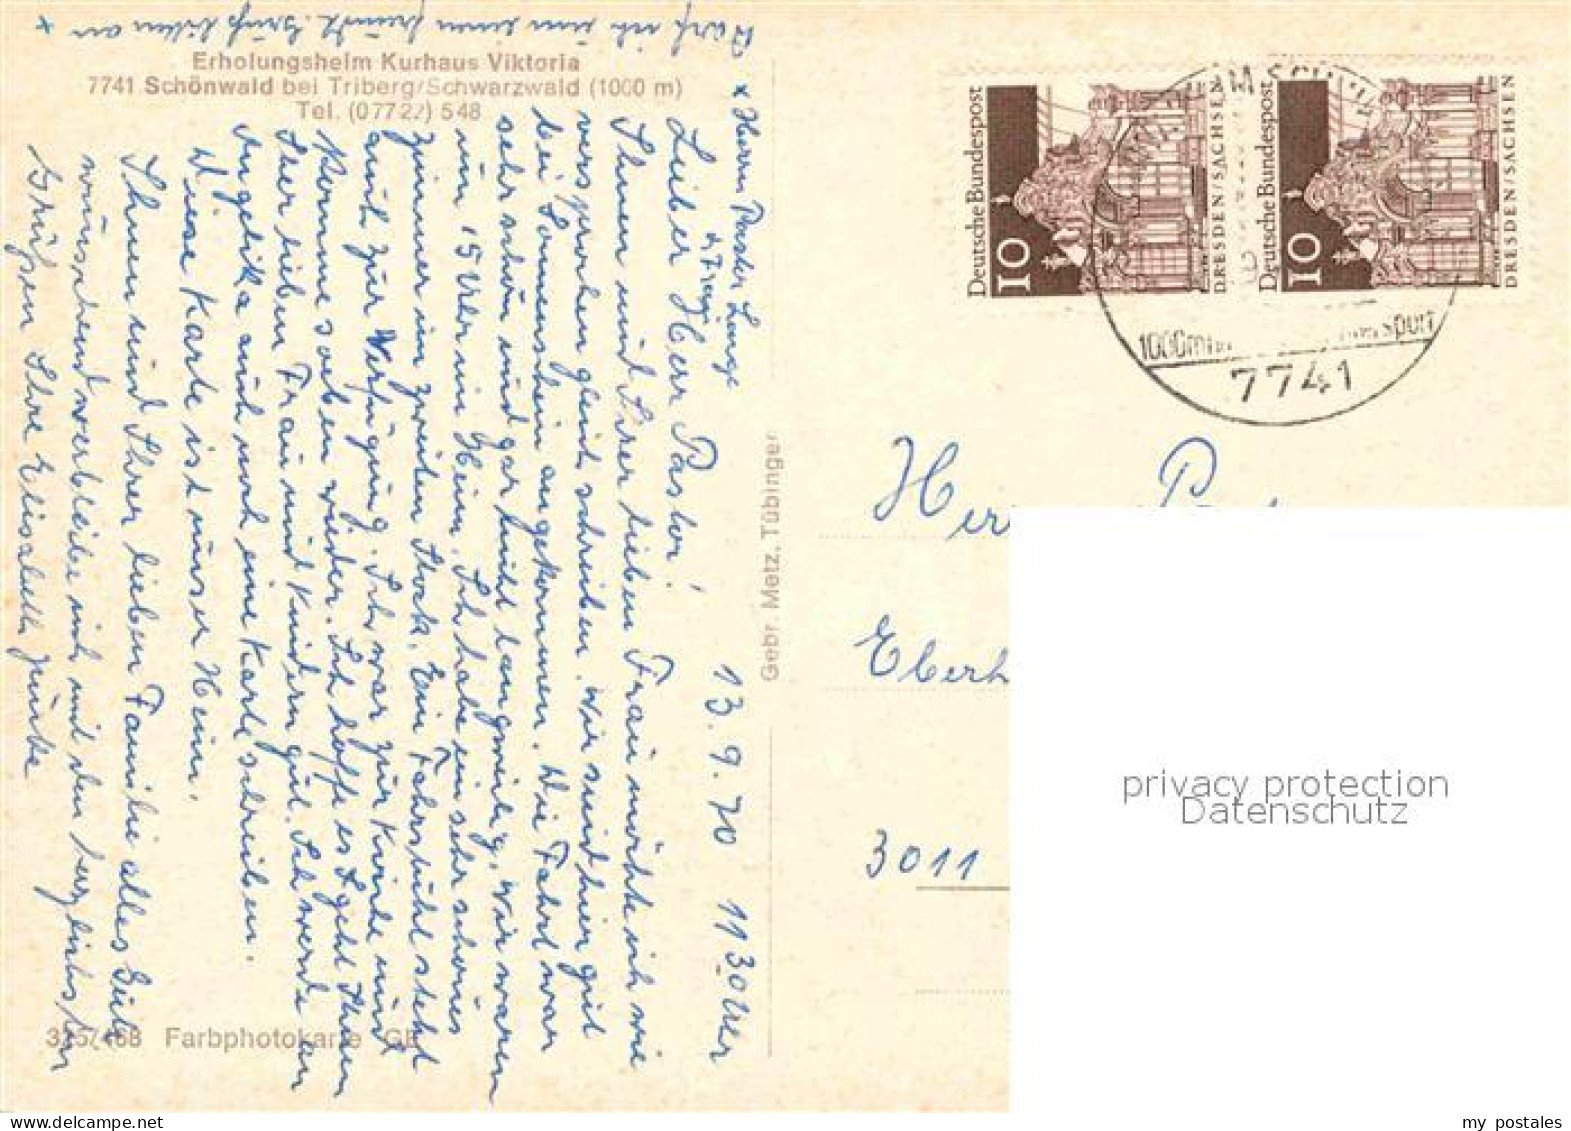 Darf ich um einen freundl. Gruß bitten an *
Erholungsheim Kurhaus Viktoria
7741 Schönwald bei Triberg/Schwarzwald (1000 m)
Tel. (07722) 548
* Herrn Pastor Lange
13.9.70 11 30 Uhr
Lieber Herr Pastor!
Ihnen und Ihrer lieben Frau möchte ich wie
versprochen gleich schreiben. Wir sind hier gut
bei Sonnenschein angekommen. Die Fahrt war
sehr schön und gar nicht langweilig. Wir waren
um 15 Uhr im Heim. Ich habe ein sehr schönes
Zimmer im zweiten Stock. Ein Fahrstuhl steht
auch zur Verfügung. Ich war zur Kirche und
komme soeben wieder. Ich hoffe es geht Ihnen
Ihrer lieben Frau und Kindern gut. Ich werde an
Angelika auch noch eine Karte schreiben.
Diese Karte ist unser Heim.
Ihnen und Ihrer lieben Familie alles Gute
wünschend verbleibe ich mit den herzlichsten
Grüßen Ihre Elisabeth
Farbphotokarte GE
Gebr. Metz, Tübingen
Deutsche Bundespost
10
DRESDEN/SACHSEN
Deutsche Bundespost
10
DRESDEN/SACHSEN
7741
Her
Eberh
3011
privacy protection
Datenschutz
my postales